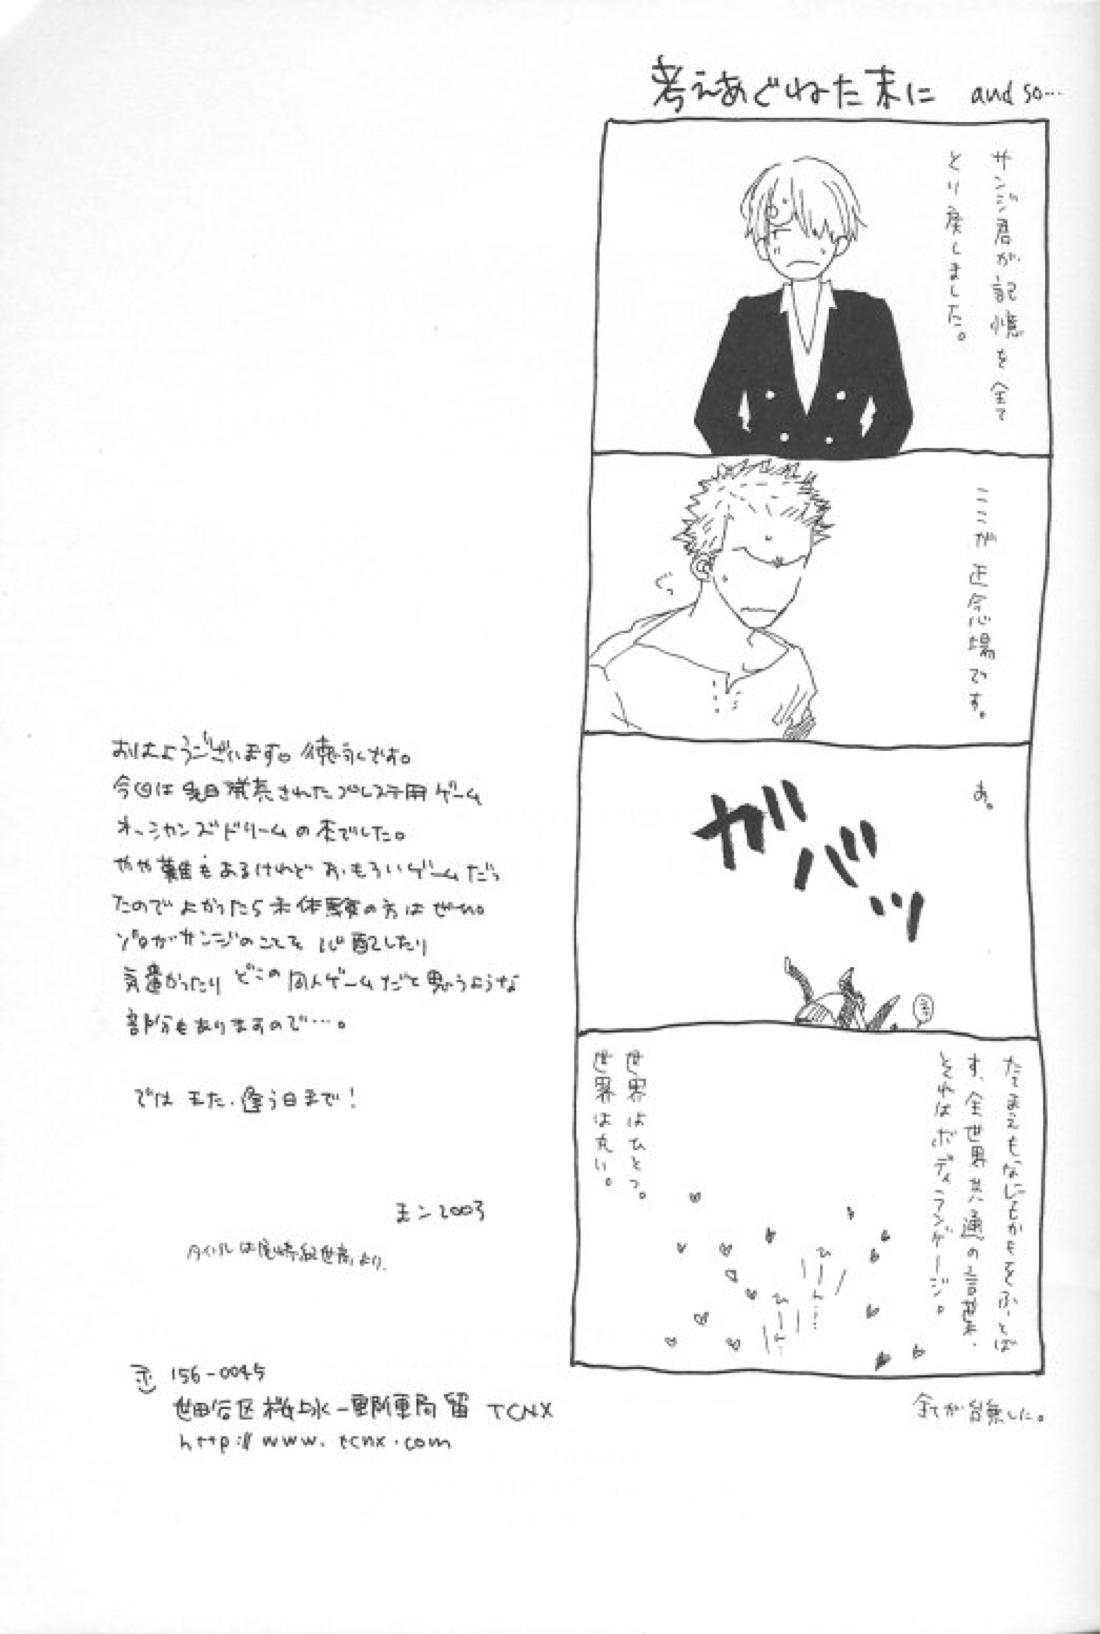 考えあぐねた末に and so…
サンジ君が記憶を全て
とり戻しました。
ここが正念場です。
ぐっ
あ。
ガバッ
たてまえもなにもかもをふっとば
す、全世界共通の言葉、
それはボディランゲージ。
世界はひとつ。
世界は丸い。
ひーん…
ひーん…
全てが台無しだ。
おはようございます。徳永です。
今回は先日発売されたプレステ用ゲーム
オーシャンズドリームの本でした。
やや難もあるけれどおもろいゲームだっ
たのでよかったら未体験の方はぜひ。
ゾロがサンジのことを心配したり
気遣かったりどこの同人ゲームだと思うような
部分もありますので…。
では また、逢う日まで!
2003
タイトルは尾崎紀世彦より。
〒156-0045
世田谷区桜上水一郵便局留 TCNX
http://www.tcnx.com